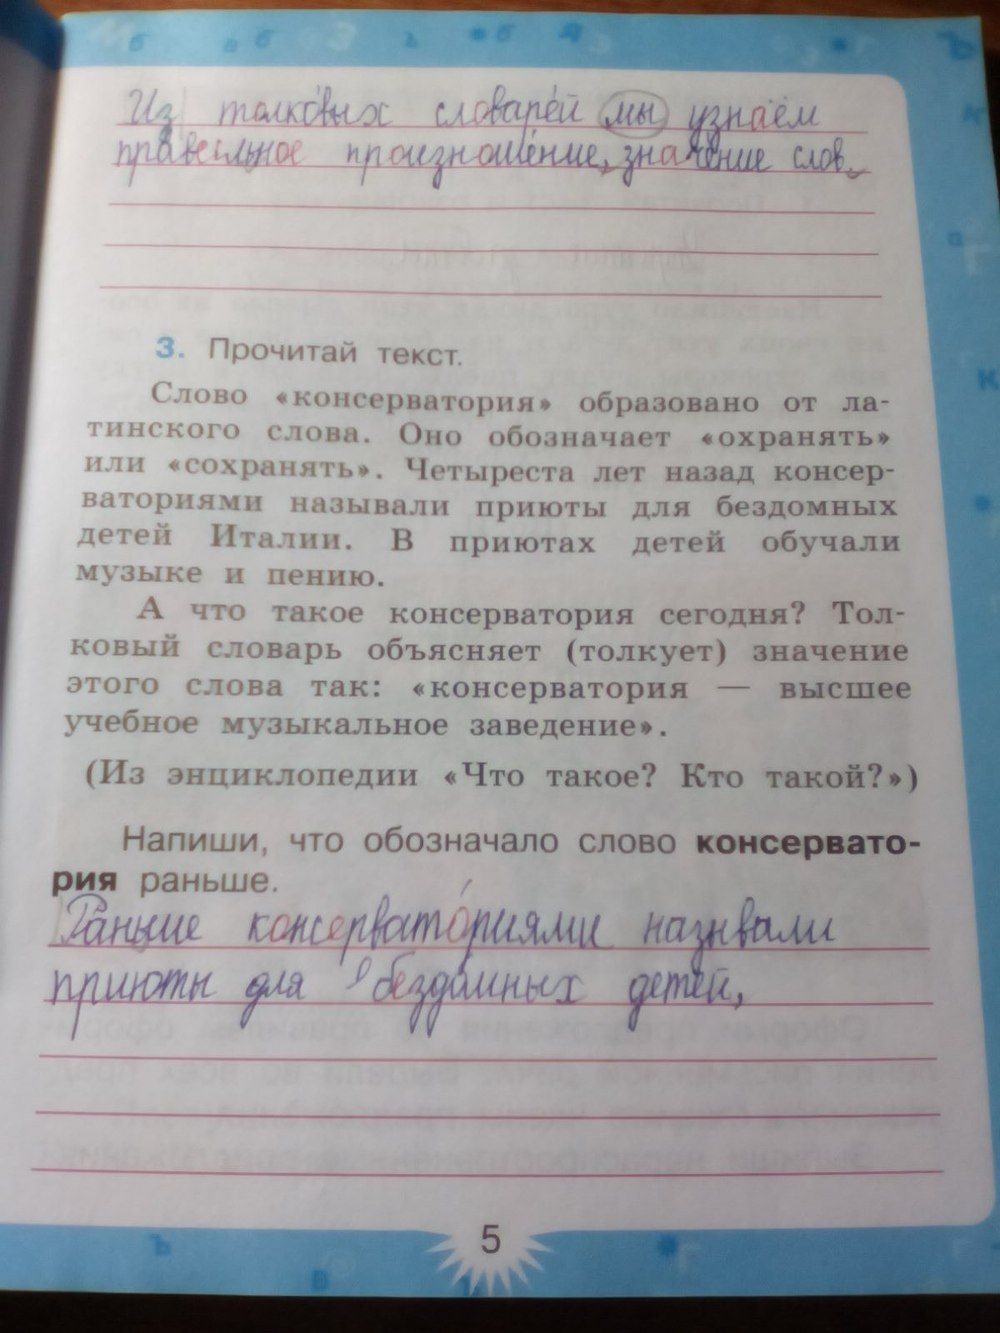 Из толко́вых словаре́й мы узна́ём
правильное произноше́ние, значе́ние слов.
3. Прочитай текст.
Слово «консерватория» образовано от ла-
тинского слова. Оно обозначает «охранять»
или «сохранять». Четыреста лет назад консер-
ваториями называли приюты для бездомных
детей Италии. В приютах детей обучали
музыке и пению.
А что такое консерватория сегодня? Тол-
ковый словарь объясняет (толкует) значение
этого слова так: «консерватория — высшее
учебное музыкальное заведение».
(Из энциклопедии «Что такое? Кто такой?»)
Напиши, что обозначало слово консервато-
рия раньше.
Раньше консервато́риями назнвали
приюты для бездо́мных дете́й,
5